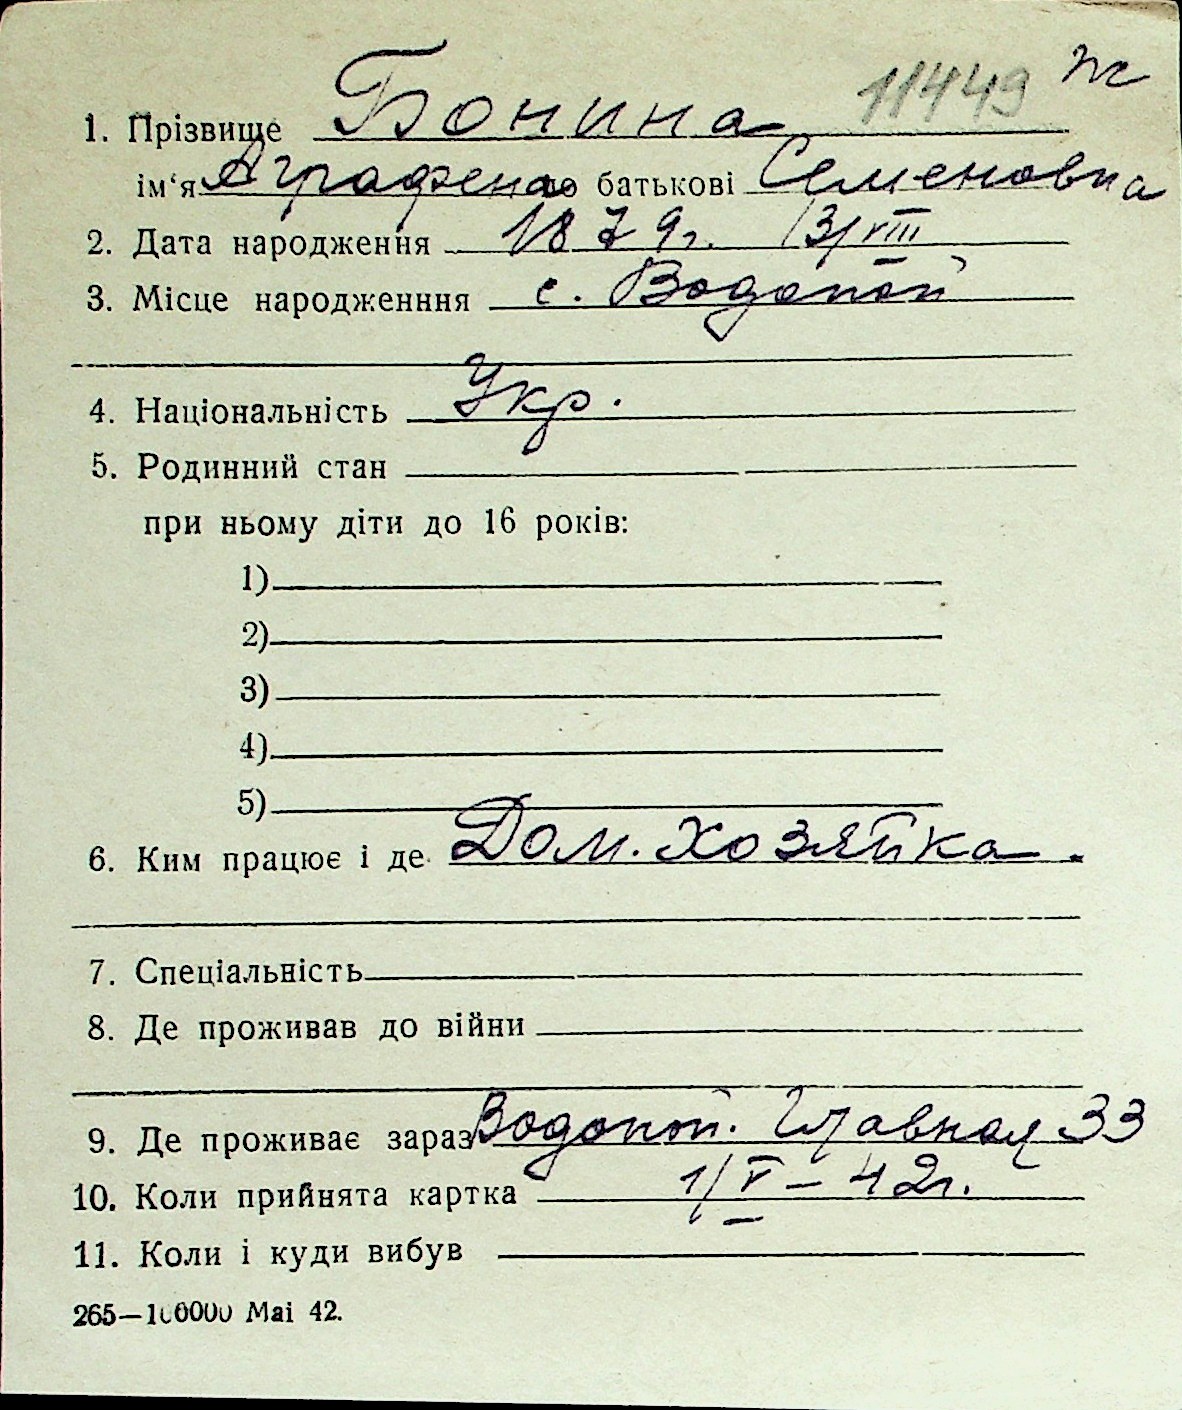 11449 ж
1. Прізвище Бонина
ім‘я Аграфена по батькові Семеновна
2. Дата народження 1879г. 13/VIII
3. Місце народженння с. Водопой
4. Національність Укр.
5. Родинний стан
при ньому діти до 16 років:
1)
2)
3)
4)
5)
6. Ким працює і де Дом. хозяйка.
7. Спеціальність
8. Де проживав до війни
9. Де проживає зараз Водопой. Главная 33
10. Коли прийнята картка 1/V – 42г.
11. Коли і куди вибув
265—100000 Mai 42.